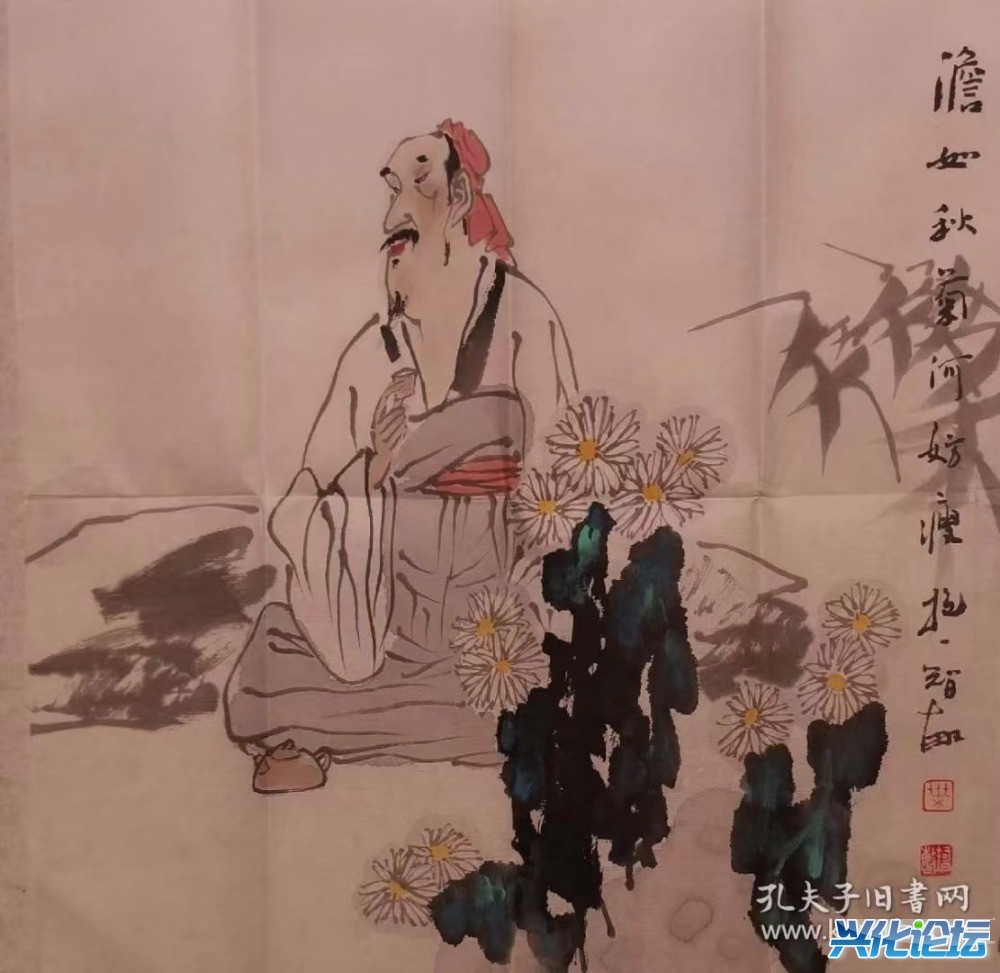 澹如秋菊何妨瘦 抱一智
孔夫子旧书网
兴化论坛